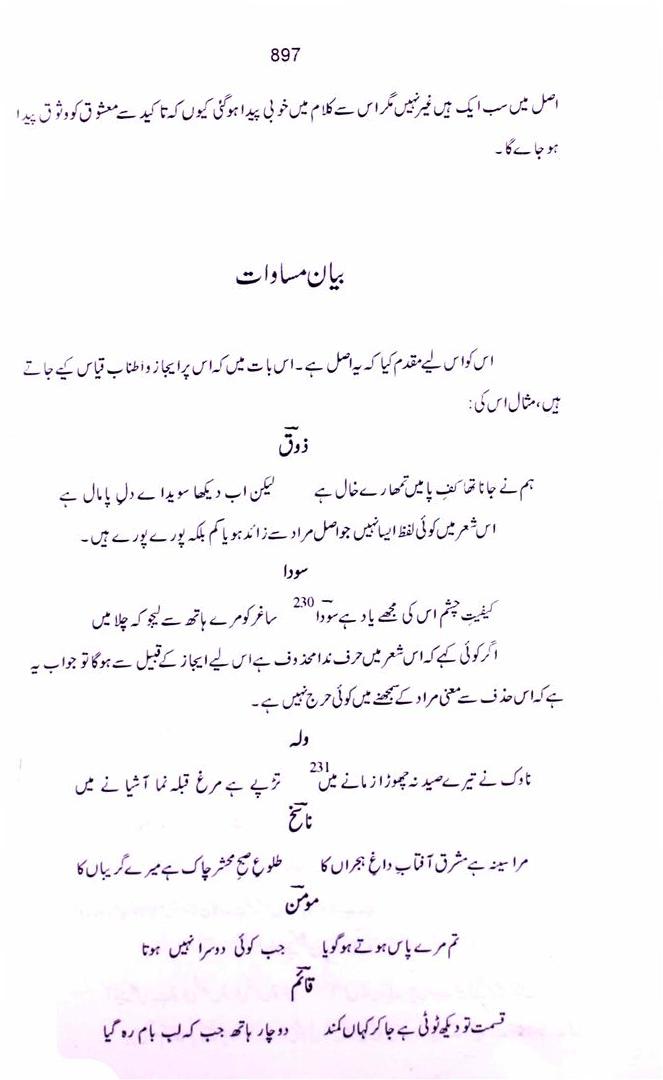 897
اصل میں سب ایک ہیں غیر نہیں مگر اس سے کلام میں خوبی پیدا ہوگئی کیوں کہ تاکید سے معشوق کو وثوق پیدا
ہو جاے گا۔
بیان مساوات
اس کو اس لیے مقدم کیا کہ یہ اصل ہے۔ اس بات میں کہ اس پر ایجاز و اطناب قیاس کیے جاتے
ہیں، مثال اس کی:
ذوق
ہم نے جانا تھا کفِ پا میں تمھارے خال ہے لیکن اب دیکھا سویداے دلِ پامال ہے
اس شعر میں کوئی لفظ ایسا نہیں جو اصل مراد سے زائد ہو یا کم بلکہ پورے پورے ہیں۔
سودا
کیفیتِ چشم اس کی مجھے یاد ہے سودا 230 ساغر کو مرے ہاتھ سے لیجو کہ چلا میں
اگر کوئی کہے کہ اس شعر میں حرف ندا محذوف ہے اس لیے ایجاز کے قبیل سے ہوگا تو جواب یہ
ہے کہ اس حذف سے معنی مراد کے سمجھنے میں کوئی حرج نہیں ہے۔
ولہ
ناوک نے تیرے صید نہ چھوڑا زمانے میں 231 تڑپے ہے مرغ قبلہ نما آشیانے میں
ناسخ
مرا سینہ ہے مشرق آفتابِ داغِ ہجراں کا طلوعِ صبحِ محشر چاک ہے میرے گریباں کا
مومن
تم مرے پاس ہوتے ہو گویا جب کوئی دوسرا نہیں ہوتا
قائم
قسمت تو دیکھ ٹوٹی ہے جا کر کہاں کمند دو چار ہاتھ جب کہ لب بام رہ گیا